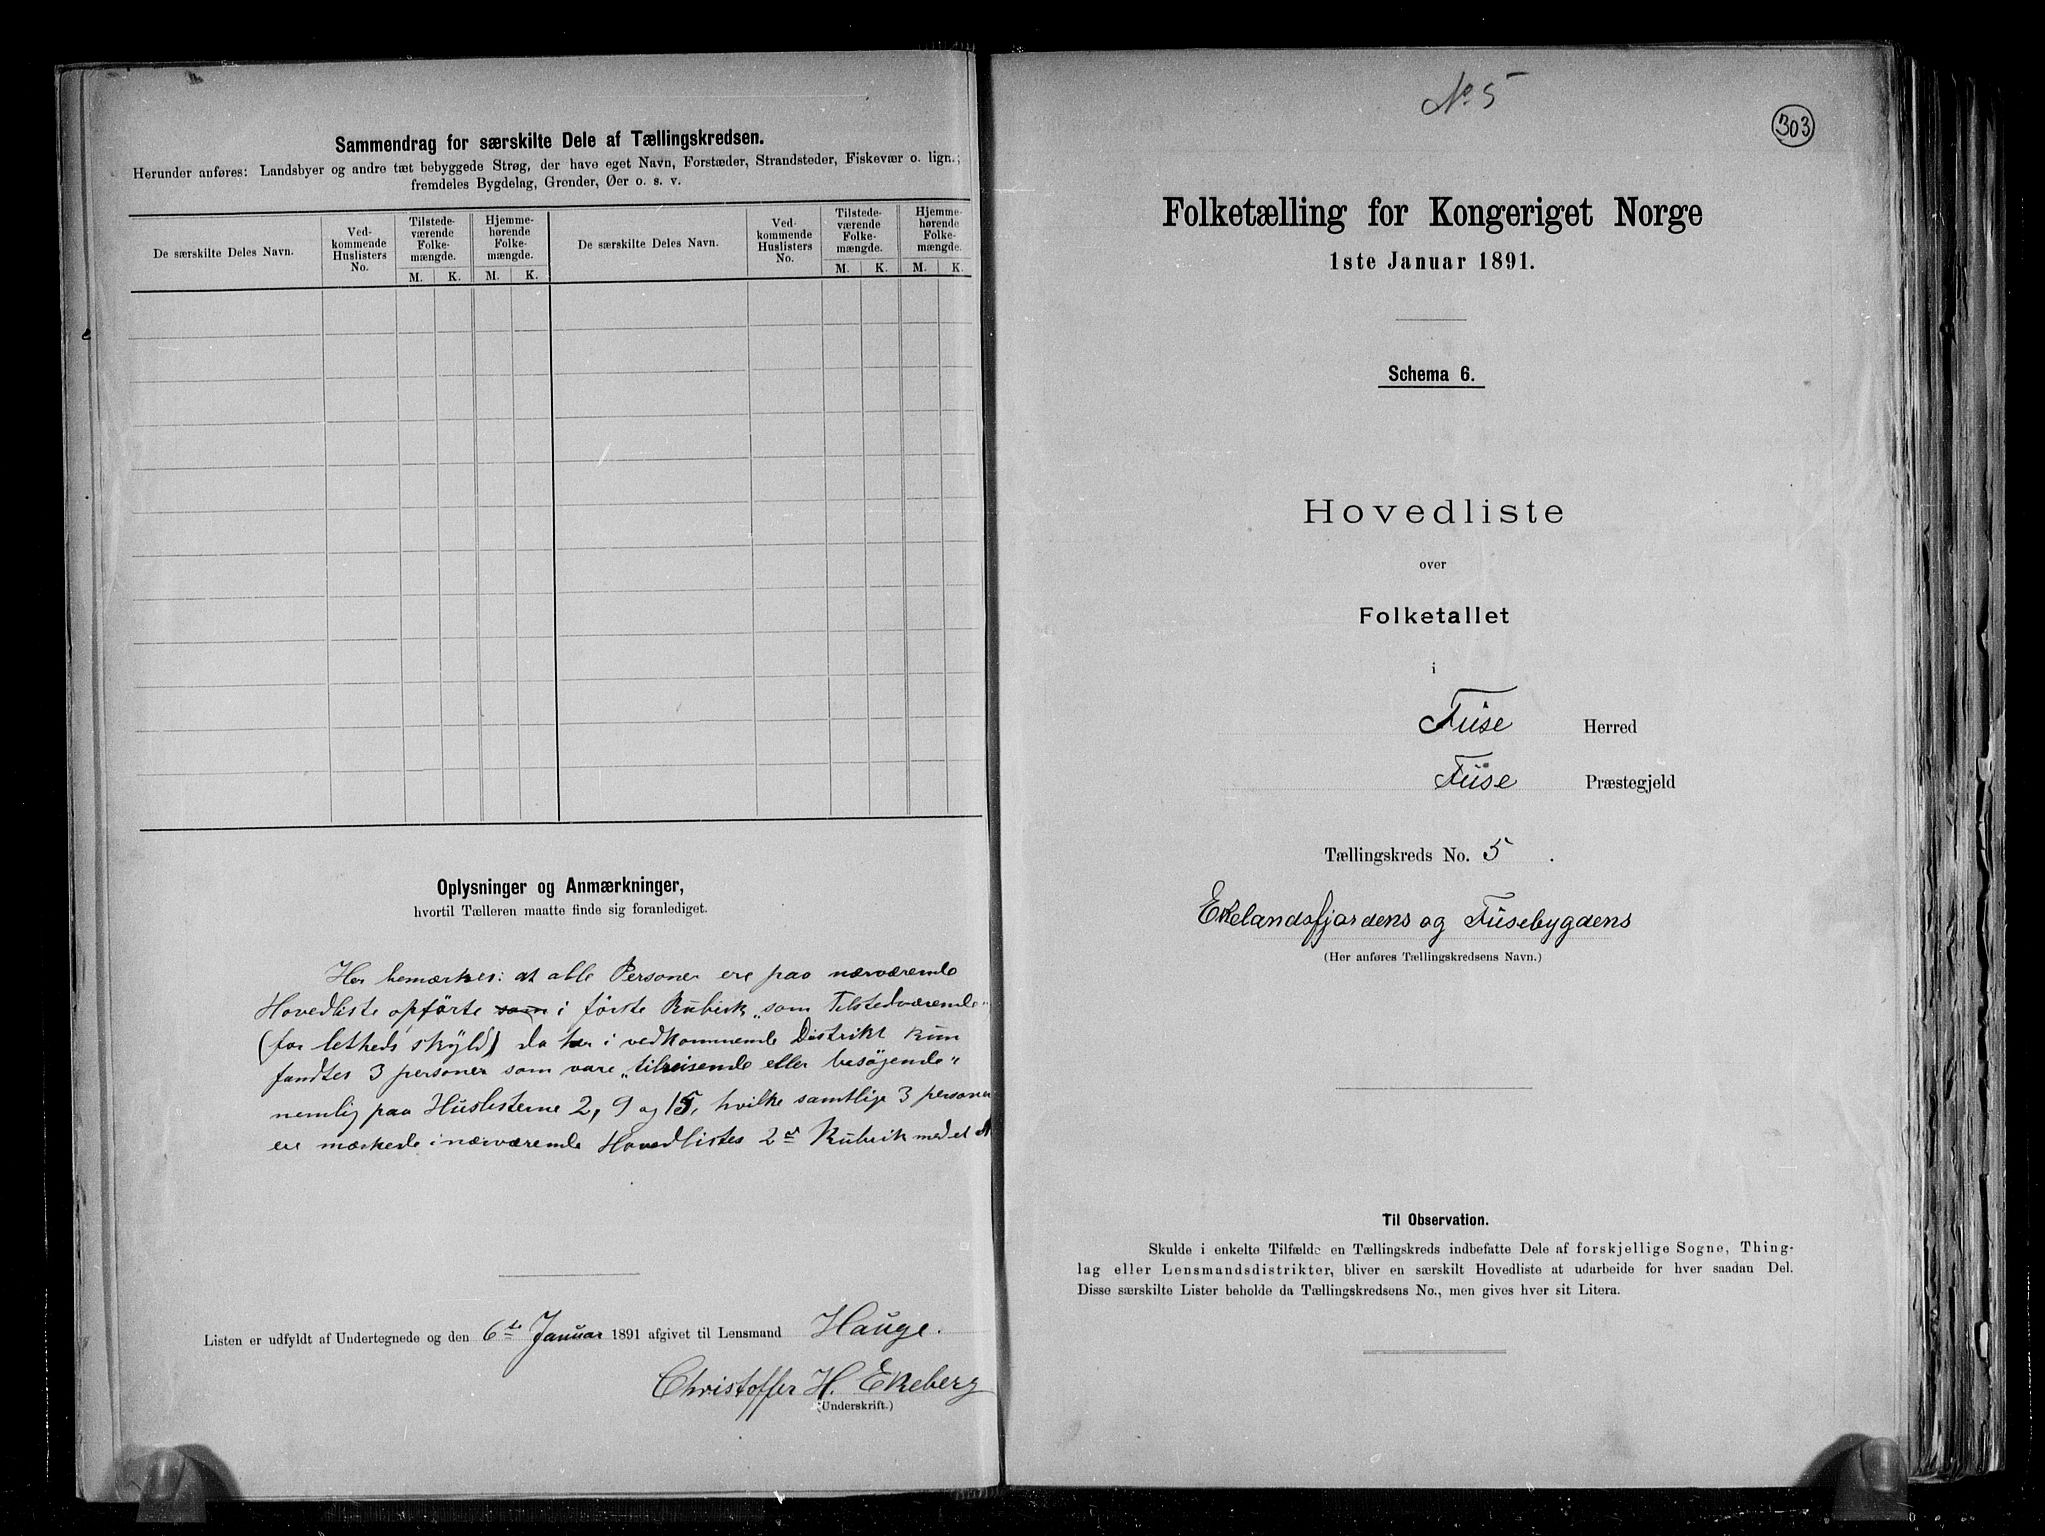 Sammendrag for særskilte Dele af Tællingskredsen.
Herunder anføres: Landsbyer og andre tæt bebyggede Strøg, der have eget Navn, Forstæder, Strandsteder, Fiskevær o. lign.;
fremdeles Bygdelag, Grender, Øer o. s. v.
De særskilte Deles Navn.
Ved-
kommende
Huslisters
No.
Tilstede-
værende
Folke-
mængde.
M. K.
Hjemme-
hørende
Folke-
mængde.
M. K.
De særskilte Deles Navn.
Ved-
kommende
Huslisters
No.
Tilstede-
værende
Folke-
mængde.
M. K.
Hjemme-
hørende
Folke-
mængde.
M. K.
Oplysninger og Anmærkninger,
hvortil Tælleren maatte finde sig foranlediget.
Her bemærkes: at alle Personer ere paa nærværende
Hovedliste opførte som i første Rubrik „som Tilstedværende"
(for letheds skyld) da her i vedkommende Distrikt kun
fandtes 3 personer som vare „tilreisende eller besøgende"
nemlig paa Huslisterne 2, 9 og 15, hvilke samtlige 3 personer
ere mærkede i nærværende Hovedlistes 2den Rubrik med et
Listen er udfyldt af Undertegnede og den 6te Januar 1891 afgivet til Lensmand Hauge.
Christoffer H. Ekeberg
(Underskrift.)
No. 5
303
Folketælling for Kongeriget Norge
1ste Januar 1891.
Schema 6.
Hovedliste
over
Folketallet
i
Fuse Herred
Fuse Præstegjeld
Tællingskreds No. 5.
Ekelandsfjordens og Fusebygdens
(Her anføres Tællingskredsens Navn.)
Til Observation.
Skulde i enkelte Tilfælde en Tællingskreds indbefatte Dele af forskjellige Sogne, Thing-
lag eller Lensmandsdistrikter, bliver en særskilt Hovedliste at udarbeide for hver saadan Del.
Disse særskilte Lister beholde da Tællingskredsens No., men gives hver sit Litera.